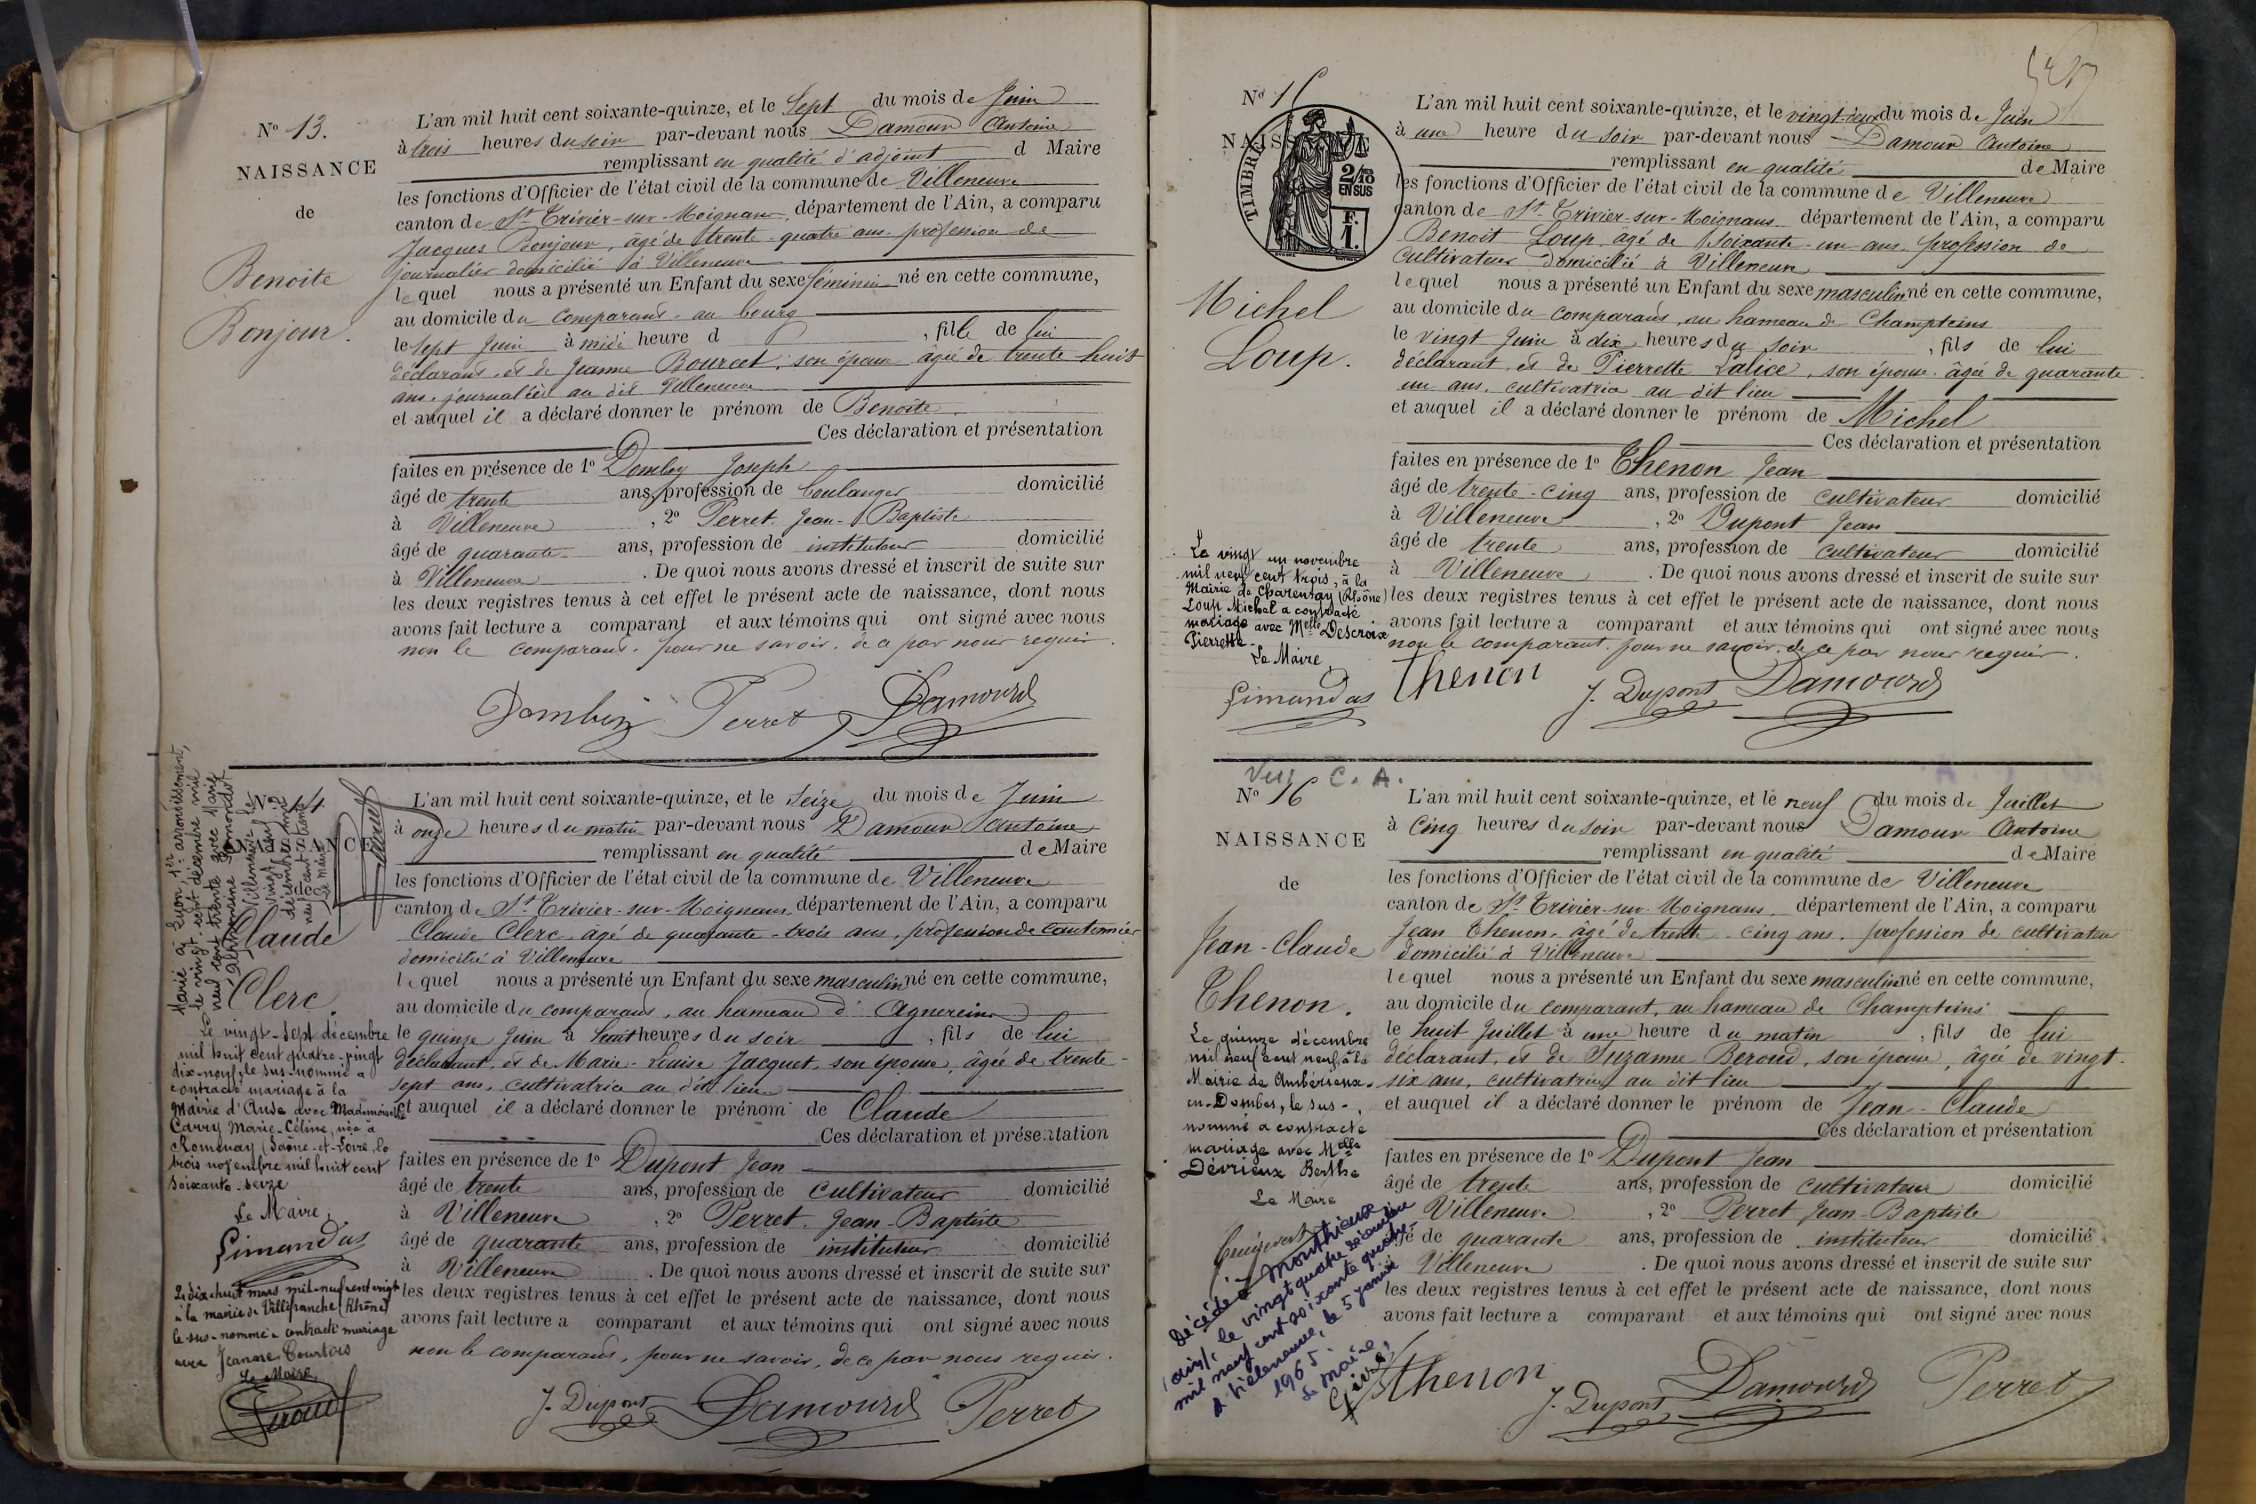 N° 13.
NAISSANCE
de
Benoite
Bonjour.
L'an mil huit cent soixante-quinze, et le Sept du mois de Juin
à trois heures du soir par-devant nous Damour Antoine
remplissant en qualité d'adjoint d Maire
les fonctions d'Officier de l'état civil de la commune de Villeneuve
canton de St Trivier-sur-Moignans département de l'Ain, a comparu
Jacques Bonjour, âgé de trente-quatre ans profession de
journalier domicilié à Villeneuve
lequel nous a présenté un Enfant du sexe féminin né en cette commune,
au domicile du comparant au bourg
le sept Juin à midi heure d , fille de lui
déclarant et de Jeanne Bourcet, son épouse âgée de trente-huit
ans, journalière au dit Villeneuve
et auquel il a déclaré donner le prénom de Benoite.
Ces déclaration et présentation
faites en présence de 1° Joseph
âgé de trente ans, profession de boulanger domicilié
à Villeneuve , 2° Perret Jean-Baptiste
âgé de quarante ans, profession de instituteur domicilié
à Villeneuve . De quoi nous avons dressé et inscrit de suite sur
les deux registres tenus à cet effet le présent acte de naissance, dont nous
avons fait lecture a comparant et aux témoins qui ont signé avec nous
non le comparant, pour ne savoir, de ce par nous requis.
Perret Damour
N° 14
NAISSANCE
de
Claude
Clerc.
Marié à Lyon, 1er arrondissement,
le vingt sept décembre mil
neuf cent trente avec Marie
Villeneuve le
vingt neuf
décembre mil
neuf cent trente
Le maire
Le vingt-sept décembre
mil huit cent quatre-vingt
dix-neuf, le sus-nommé a
contracté mariage à la
Mairie d'Anse avec Mademoiselle
Carry Marie-Céline, née à
Romenay (Saône-et-Loire, le
trois novembre mil huit cent
soixante-seize
Le Maire,
Limandas
Le dix-huit mars mil neuf cent vingt
à la mairie de Villefranche (Rhône)
le sus-nommé a contracté mariage
avec Jeanne Courtois
Le Maire,
L'an mil huit cent soixante-quinze, et le Seize du mois de Juin
à onze heures du matin par-devant nous Damour Antoine
remplissant en qualité de Maire
les fonctions d'Officier de l'état civil de la commune de Villeneuve
canton de St Trivier-sur-Moignans département de l'Ain, a comparu
Claude Clerc, âgé de quarante-trois ans, profession de cantonnier
domicilié à Villeneuve
lequel nous a présenté un Enfant du sexe masculin né en cette commune,
au domicile du comparant, au hameau d'Agnereins
le quinze Juin à huit heures du soir , fils de lui
déclarant, et de Marie-Louise Jacquet, son épouse, âgée de trente-
sept ans, cultivatrice au dit lieu
et auquel il a déclaré donner le prénom de Claude
Ces déclaration et présentation
faites en présence de 1° Dupont Jean
âgé de trente ans, profession de cultivateur domicilié
à Villeneuve , 2° Perret Jean-Baptiste
âgé de quarante ans, profession de instituteur domicilié
à Villeneuve . De quoi nous avons dressé et inscrit de suite sur
les deux registres tenus à cet effet le présent acte de naissance, dont nous
avons fait lecture a comparant et aux témoins qui ont signé avec nous
non le comparant, pour ne savoir, de ce par nous requis.
J. Dupont Damour Perret
N° 15
NAISSANCE
TIMBRE
2/10
EN SUS
F.
1.
Michel
Loup.
Le vingt un novembre
mil neuf cent trois, à la
Mairie de Charentay (Rhône)
Loup Michel a contracté
mariage avec Melle Descroix
Pierrette.
Le Maire,
Limandas
L'an mil huit cent soixante-quinze, et le vingt-deux du mois de Juin
à une heure du soir par-devant nous Damour Antoine
remplissant en qualité de Maire
les fonctions d'Officier de l'état civil de la commune de Villeneuve
canton de St Trivier-sur-Moignans département de l'Ain, a comparu
Benoit Loup âgé de soixante-un ans profession de
cultivateur domicilié à Villeneuve
lequel nous a présenté un Enfant du sexe masculin né en cette commune,
au domicile du comparant, au hameau de Champteins
le vingt Juin à dix heures du soir , fils de lui
déclarant, et de Pierrette Lalice, son épouse âgée de quarante
un ans, cultivatrice au dit lieu
et auquel il a déclaré donner le prénom de Michel
Ces déclaration et présentation
faites en présence de 1° Thenon Jean
âgé de trente-cinq ans, profession de cultivateur domicilié
à Villeneuve , 2° Dupont Jean
âgé de trente ans, profession de cultivateur domicilié
à Villeneuve . De quoi nous avons dressé et inscrit de suite sur
les deux registres tenus à cet effet le présent acte de naissance, dont nous
avons fait lecture a comparant et aux témoins qui ont signé avec nous
non le comparant, pour ne savoir, de ce par nous requis.
Thenon J. Dupont Damour
C. A.
N° 16
NAISSANCE
de
Jean-Claude
Thenon.
Le quinze décembre
mil neuf cent neuf, à la
Mairie de Ambérieux-
en-Dombes, le sus-
nommé a contracté
mariage avec Melle
Dévrieux Berthe
Le Maire
Décédé à Monthieux
(Ain), le vingt quatre décembre
mil neuf cent soixante quatre-
à Villeneuve, le 5 janvier
1965
Le Maire,
L'an mil huit cent soixante-quinze, et le neuf du mois de Juillet
à cinq heures du soir par-devant nous Damour Antoine
remplissant en qualité de Maire
les fonctions d'Officier de l'état civil de la commune de Villeneuve
canton de St Trivier-sur-Moignans, département de l'Ain, a comparu
Jean Thenon, âgé de trente-cinq ans, profession de cultivateur
domicilié à Villeneuve
lequel nous a présenté un Enfant du sexe masculin né en cette commune,
au domicile du comparant, au hameau de Champteins
le huit Juillet à une heure du matin , fils de lui
déclarant, et de Suzanne Beroud, son épouse, âgée de vingt-
six ans, cultivatrice au dit lieu
et auquel il a déclaré donner le prénom de Jean-Claude
Ces déclaration et présentation
faites en présence de 1° Dupont Jean
âgé de trente ans, profession de cultivateur domicilié
Villeneuve , 2° Perret Jean-Baptiste
âgé de quarante ans, profession de instituteur domicilié
Villeneuve . De quoi nous avons dressé et inscrit de suite sur
les deux registres tenus à cet effet le présent acte de naissance, dont nous
avons fait lecture a comparant et aux témoins qui ont signé avec nous
Thenon J. Dupont Damour Perret